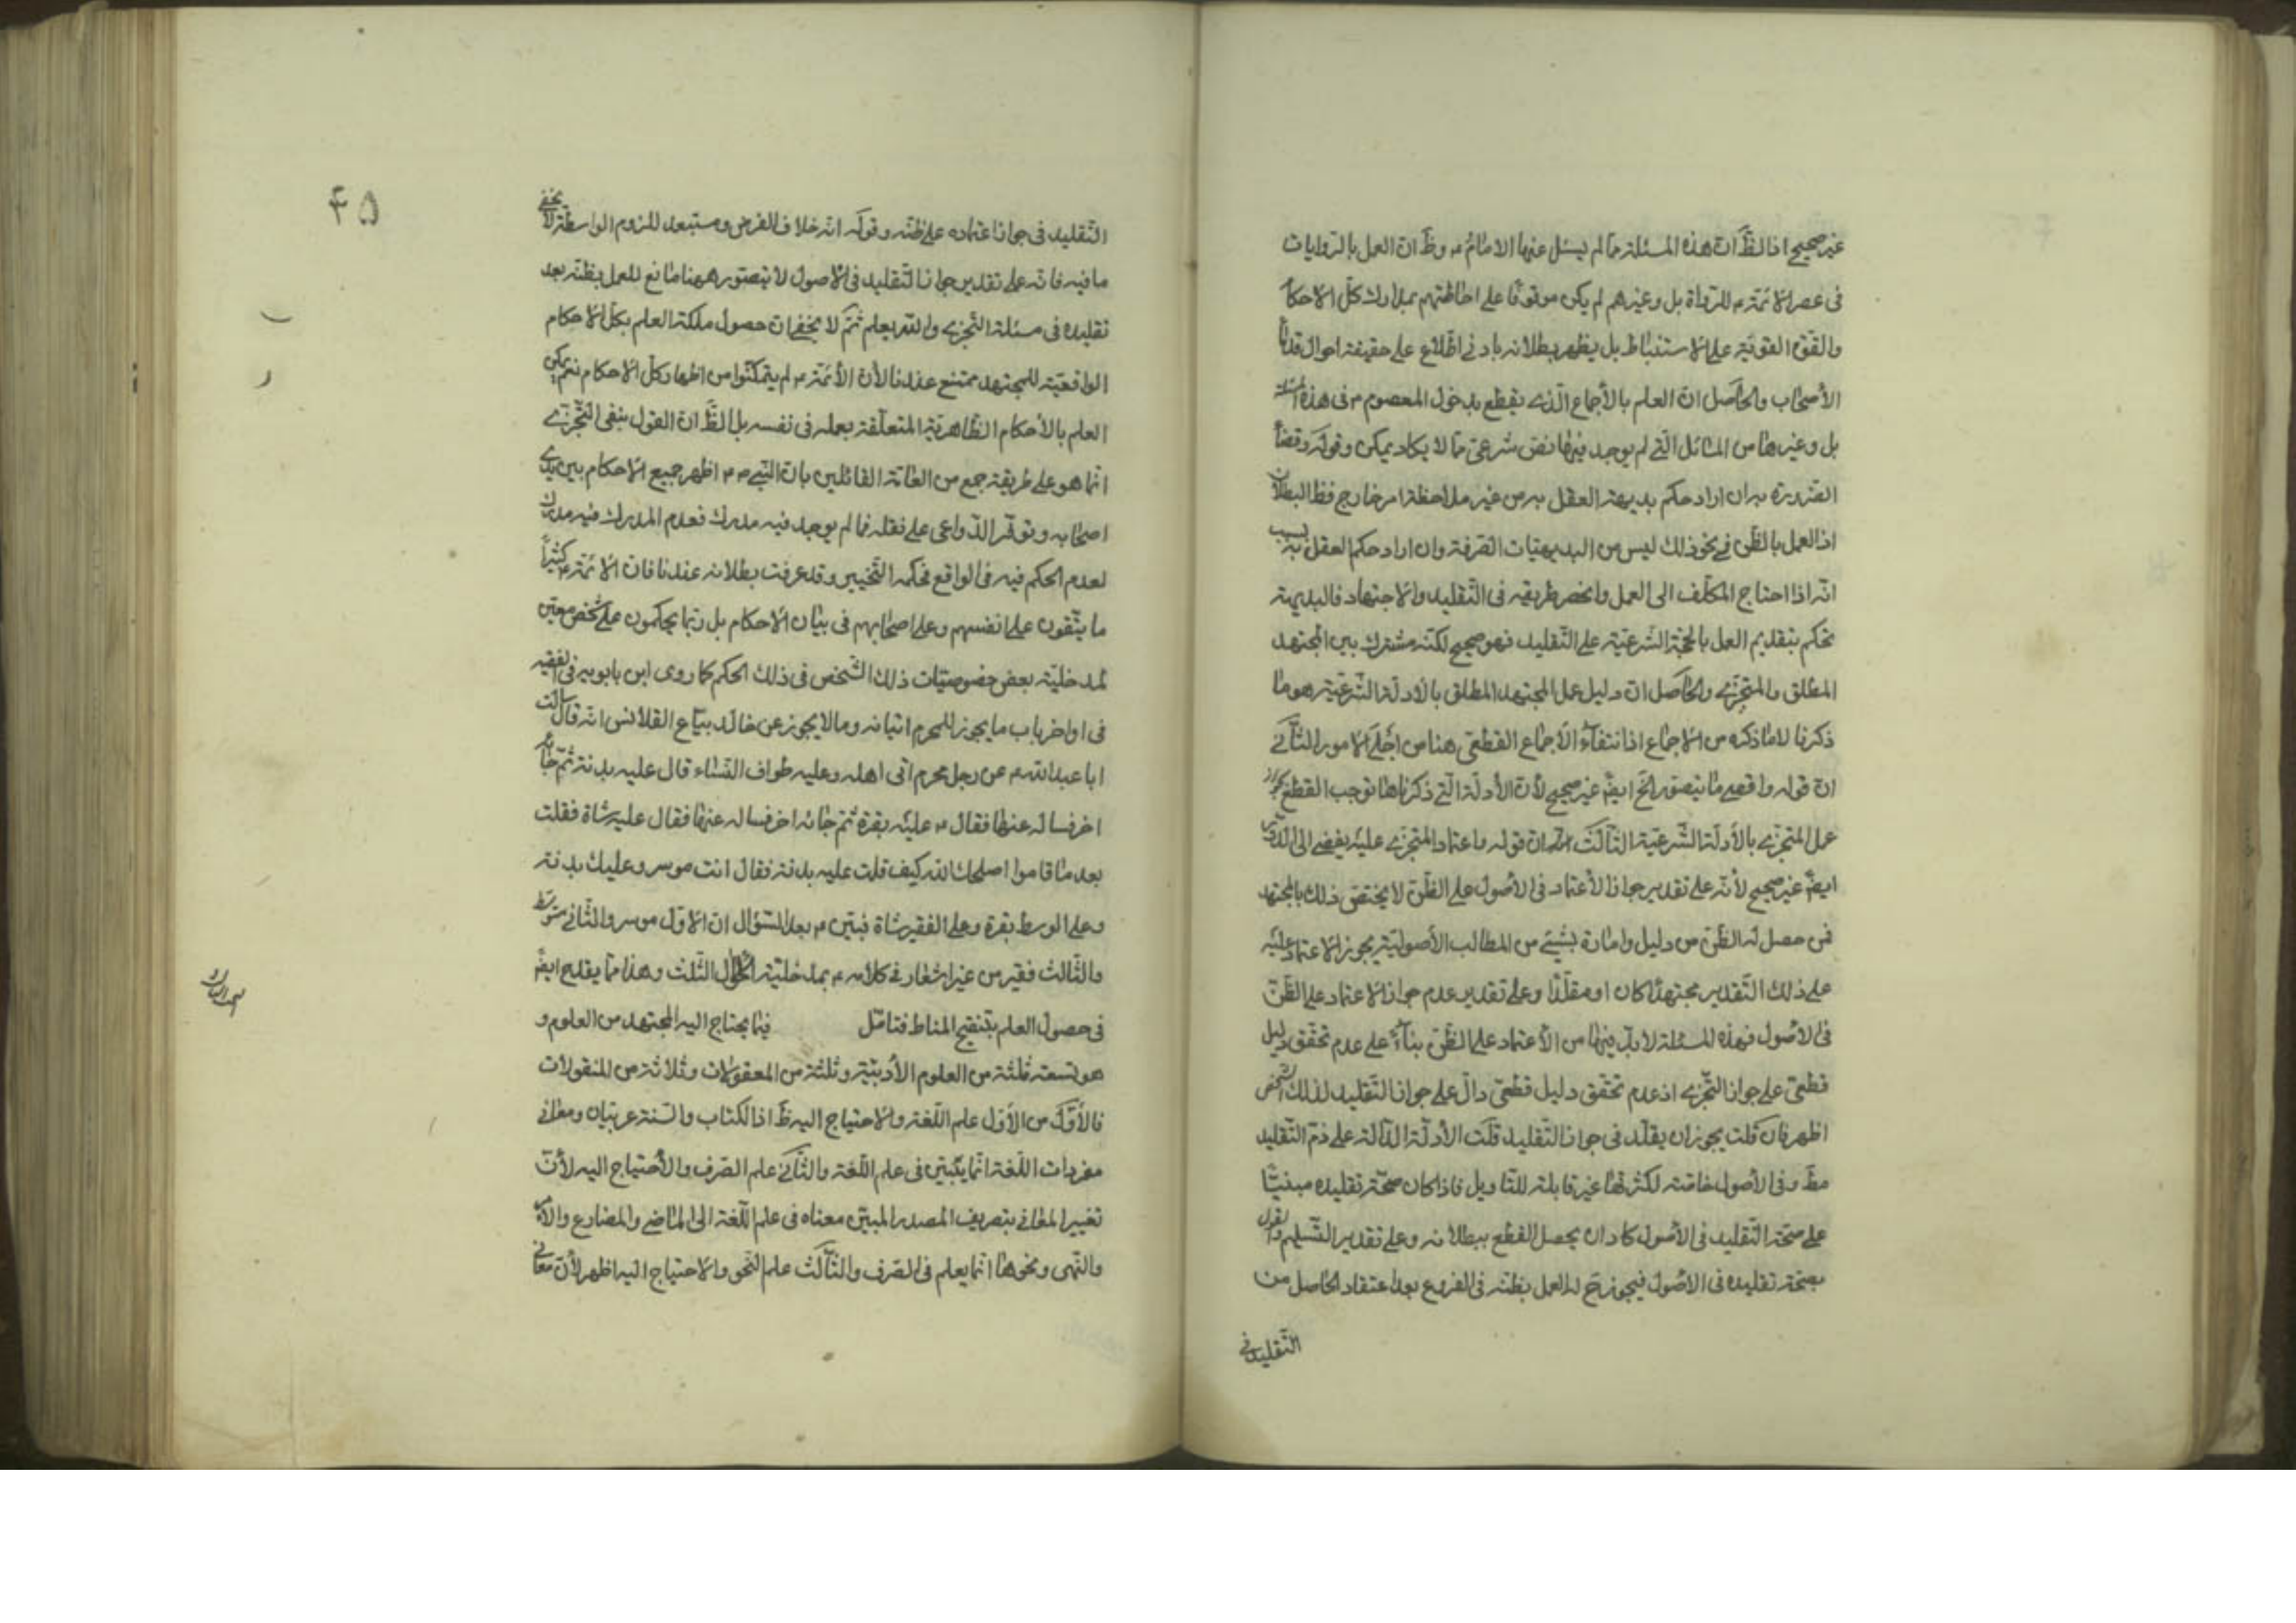 غير صحيح اذ الظّ ان هذه المسئلة مما لم يسئل عنها الامام ع وظّ ان العمل بالروايات
فى عصر الائمة ع للرواة بل وغيرهم لم يكن موقوفا على احاطتهم بمدارك كل الاحكا
والقوة القوية على الاستنباط بل يظهر بطلانه بادنى اطلاع على حقيقة احوال قدماء
الأصحاب والحاصل ان العلم بالأجماع الذى يقطع بدخول المعصوم ع فى هذه المسئلة
بل وغيرها من المسائل التى لم يوجد فيها نص شرعى مما لا يكاد يمكن وقوله وقضاء
الضرورة به ان اراد حكم بديهة العقل به من غير ملاحظة امر خارج فظ البطلان
اذ العمل بالظن فى نحو ذلك ليس من البديهيات الصرفة وان اراد حكم العقل به بسبب
انه اذا احتاج المكلف الى العمل وانحصر طريقه فى التقليد والاجتهاد فالبديهة
تحكم بتقديم العمل بالحجة الشرعية على التقليد فهو صحيح لكنه مشترك بين المجتهد
المطلق والمتجزى والحاصل ان دليل عمل المجتهد المطلق بالادلة الشرعية هو ما
ذكرنا لا ما ذكره من الاجماع اذ انتفاء الاجماع القطعى هنا من اجلى الامور الثانى
ان قوله واقصى ما يتصور الخ ايضً غير صحيح لأن الأدلة التى ذكرناها توجب القطع بجواز
عمل المتجزى بالأدلة الشرعية الثالث ان قوله واعتماد المتجزى عليه يفضى الى الدور
ايضً غير صحيح لأنه على تقدير جواز الأعتماد فى الأصول على الظن لا يختص ذلك بالمجتهد
فمن حصل له الظن من دليل وامارة بشيئ من المطالب الأصولية يجوز الاعتماد عليه
على ذلك التقدير مجتهدا كان او مقلدا وعلى تقدير عدم جواز الاعتماد على الظن
فى الاصول فهذه المسئلة لابد فيها من الأعتماد على الظن بناء على عدم تحقق دليل
قطعى على جواز التجزى اذ عدم تحقق دليل قطعى دال على جواز التقليد لذلك الشخص
اظهر فان قلت يجوز ان يقلد فى جواز التقليد قلت الأدلة الدالة على ذم التقليد
مطّ وفى الأصول خاصة لكثرتها غير قابلة للتاويل فاذا كان صحة تقليده مبنيا
على صحة التقليد فى الاصول كاد ان يحصل القطع ببطلانه وعلى تقدير التسليم والقول
بصحة تقليده فى الاصول فيجوز ح له العمل بظنه فى الفروع بعد اعتقاد الحاصل من
التقليد فى
۴۵
التقليد فى جواز اعتماده على ظنه وقوله انه خلاف الفرض ومستبعد للزوم الواسطة لا يخفى
ما فيه فانه على تقدير جواز التقليد فى الاصول لا يتصور ههنا مانع للعمل بظنه بعد
تقليده فى مسئلة التجزى والله يعلم ثم لا يخفى ان حصول ملكة العلم بكل الاحكام
الواقعية للمجتهد ممتنع عندنا لأن الأئمة ع لم يتمكنوا من اظهار كل الاحكام نعم يمكن
العلم بالأحكام الظاهرية المتعلقة بعمله فى نفسه بل الظّ ان القول بنفى التجزى
انما هو على طريقة جمع من العامة القائلين بان النبى ص اظهر جميع الاحكام بين يدى
اصحابه وتوفر الدواعى على نقله فما لم يوجد فيه مدرك فعدم المدرك فيه مدرك
لعدم الحكم فيه فى الواقع فحكمه التخيير وقد عرفت بطلانه عندنا فان الائمة ع كثيراً
ما يتقون على انفسهم وعلى اصحابهم فى بيان الاحكام بل ربما يحكمون على شخص معين
لمدخلية بعض خصوصيات ذلك الشخص فى ذلك الحكم كما روى ابن بابويه فى الفقيه
فى اواخر باب ما يجوز للمحرم اتيانه وما لا يجوز عن خالد بياع القلانس انه قال سألت
ابا عبد الله ع عن رجل محرم اتى اهله وعليه طواف النساء قال عليه بدنة ثم جائه
اخر فساله عنها فقال ع عليه بقرة ثم جائه اخر فساله عنها فقال عليه شاة فقلت
بعد ما قاموا اصلحك الله كيف قلت عليه بدنة فقال انت موسر وعليك بدنة
وعلى الوسط بقرة وعلى الفقير شاة فبين ع بعد السؤال ان الاول موسر والثانى متوسط
والثالث فقير من غير اشعار فى كلامه ع بمدخلية الحال الثلث وهذا مما يقدح ايضً
فى حصول العلم بتنقيح المناط فتامل فيما يحتاج اليه المجتهد من العلوم و
هو تسعة ثلثة من العلوم الأدبية وثلثة من المعقولات وثلاثة من المنقولات
فالأول من الأول علم اللغة والاحتياج اليه ظّ اذ الكتاب والسنة عربيان ومعانى
مفردات اللغة انما يتبين فى علم اللغة والثانى علم الصرف والأحتياج اليه لأن
تغيير المعانى بتصريف المصدر المبين معناه فى علم اللغة الى الماضى والمضارع والأمر
والنهى ونحوها انما يعلم فى الصرف والثالث علم النحو والاحتياج اليه اظهر لأن معانى